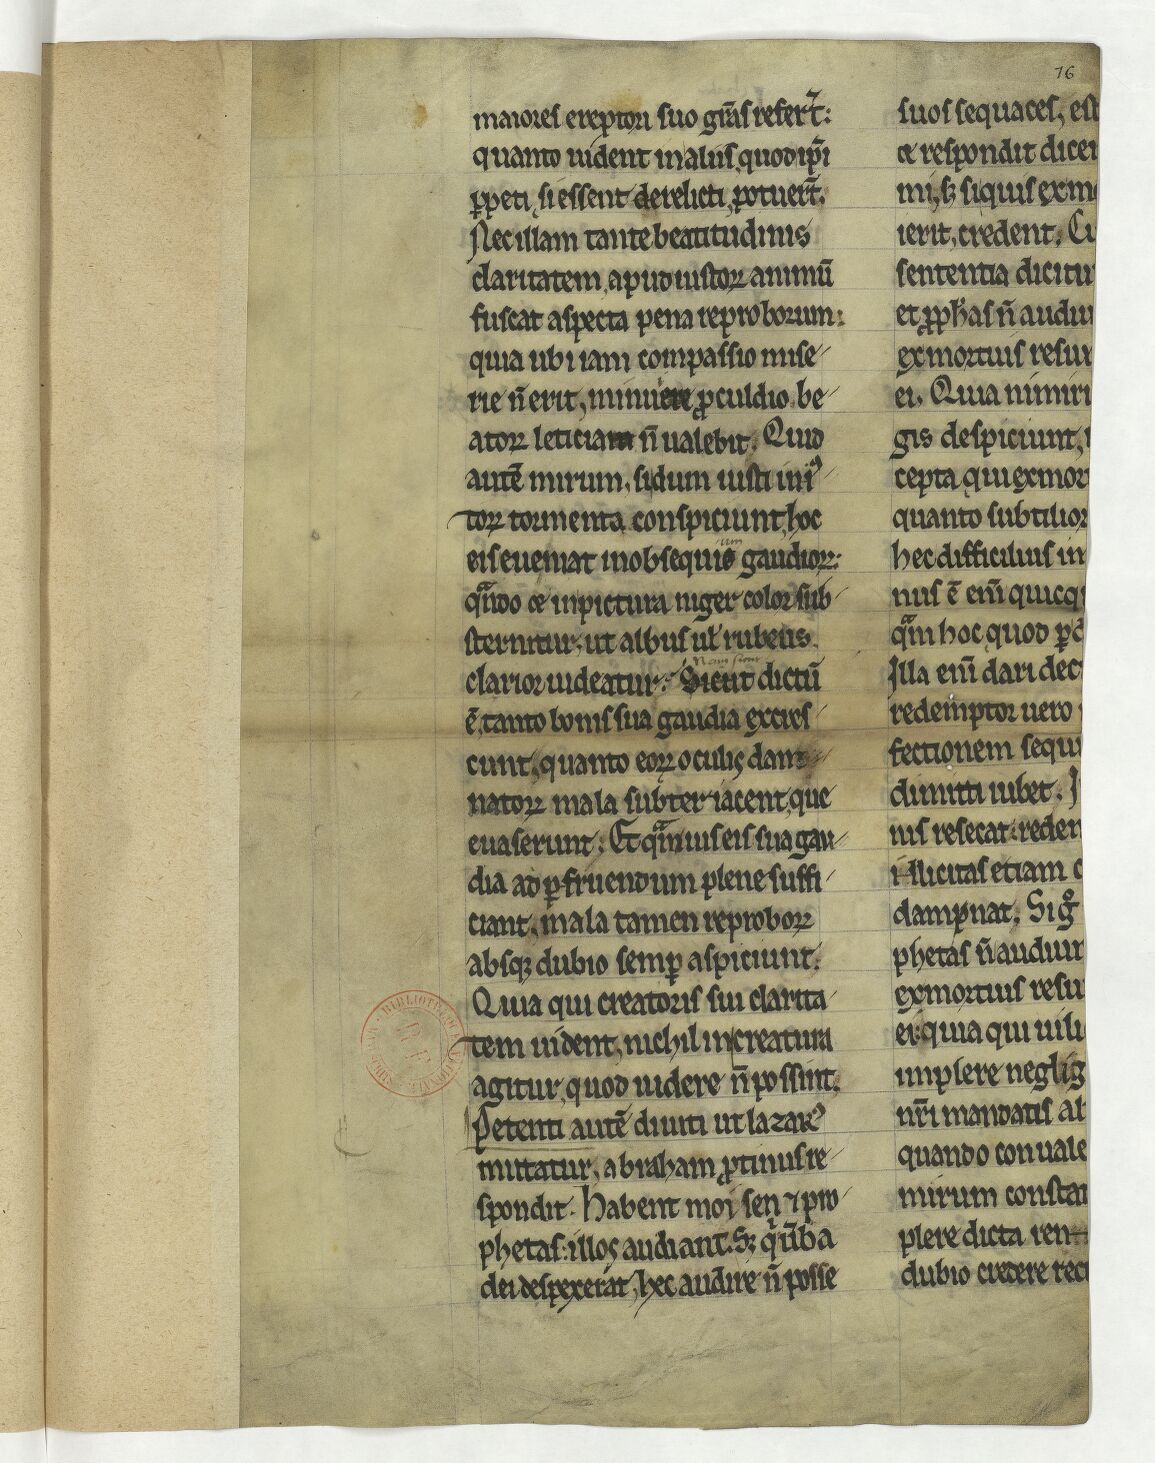 76
maiores ereptori suo gr̃as refert̃:
quanto uident in aliis, quod ip̃i
ꝑpeti, si essent derelicti, potuert̃.
Nec illam tante beatitudinis
claritatem, apud iustoꝝ animũ
fuscat aspecta pena reproborum:
quia ubi iam compassio mise-
rie ñ erit, minuere ꝓculdio be-
atoꝝ leticiam ñ ualebit. Quid
autẽ mirum, si dum iusti ini-
toꝝ tormenta conspiciunt, hoc
eis eueniat in obsequium gaudioꝝ:
qñdo ce in pictura niger color sub-
sternitur, ut albus ul' rubeus
clarior uideatur. Nam sicut dictũ
ẽ, tanto bonis sua gaudia excres-
cunt, quanto eoꝝ oculis dam-
natoꝝ mala subter iacent, que
euaserunt. Et qãmuis eis sua gau-
dia ad ꝑfruendum plene suffi-
ciant, mala tamen reproboꝝ
absqꝫ dubio semꝑ aspiciunt.
Quia qui creatoris sui clarita-
tem uident, nichil in creatura
agitur, quod uidere ñ possint.
Petenti autẽ diuiti ut lazarꝰ
mittatur, abraham ꝓtinus re-
spondit. Habent moysen ⁊ pro-
phetas: illos audiant. Sꝫ q̇ ũba
dei despexerat, hec audire ñ posse
suos sequaces, est
ce respondit dicen
mi, sꝫ si quis ex mo
ierit, credent. Cu
sententia dicitu
et ꝓph̃as ñ audiu
ex mortuis resur
ei. Quia nimiru
gis despiciunt,
cepta qui ex mor
quanto subtilior
hec difficilius in
nus ẽ eni̇̃ quicq
qãm hoc quod ꝑc
Illa eni̇̃ dari dec
redemptor uero
fectionem sequi
dimitti iubet. I
nis resecat: reden
illicitas etiam c
dampnat. Si gͦ
phetas ñ audiun
ex mortuis resu
ei: quia qui uili
implere neglig
nr̃i mandatis al
quando conuale
mirum constat
plere dicta ren
dubio credere rec